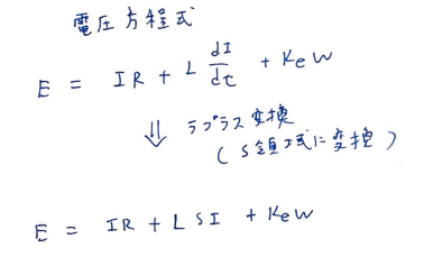 電圧方程式
E = IR + L dI/dt + Keω
⇓ ラプラス変換
(S領域に変換)
E = IR + LSI + Keω